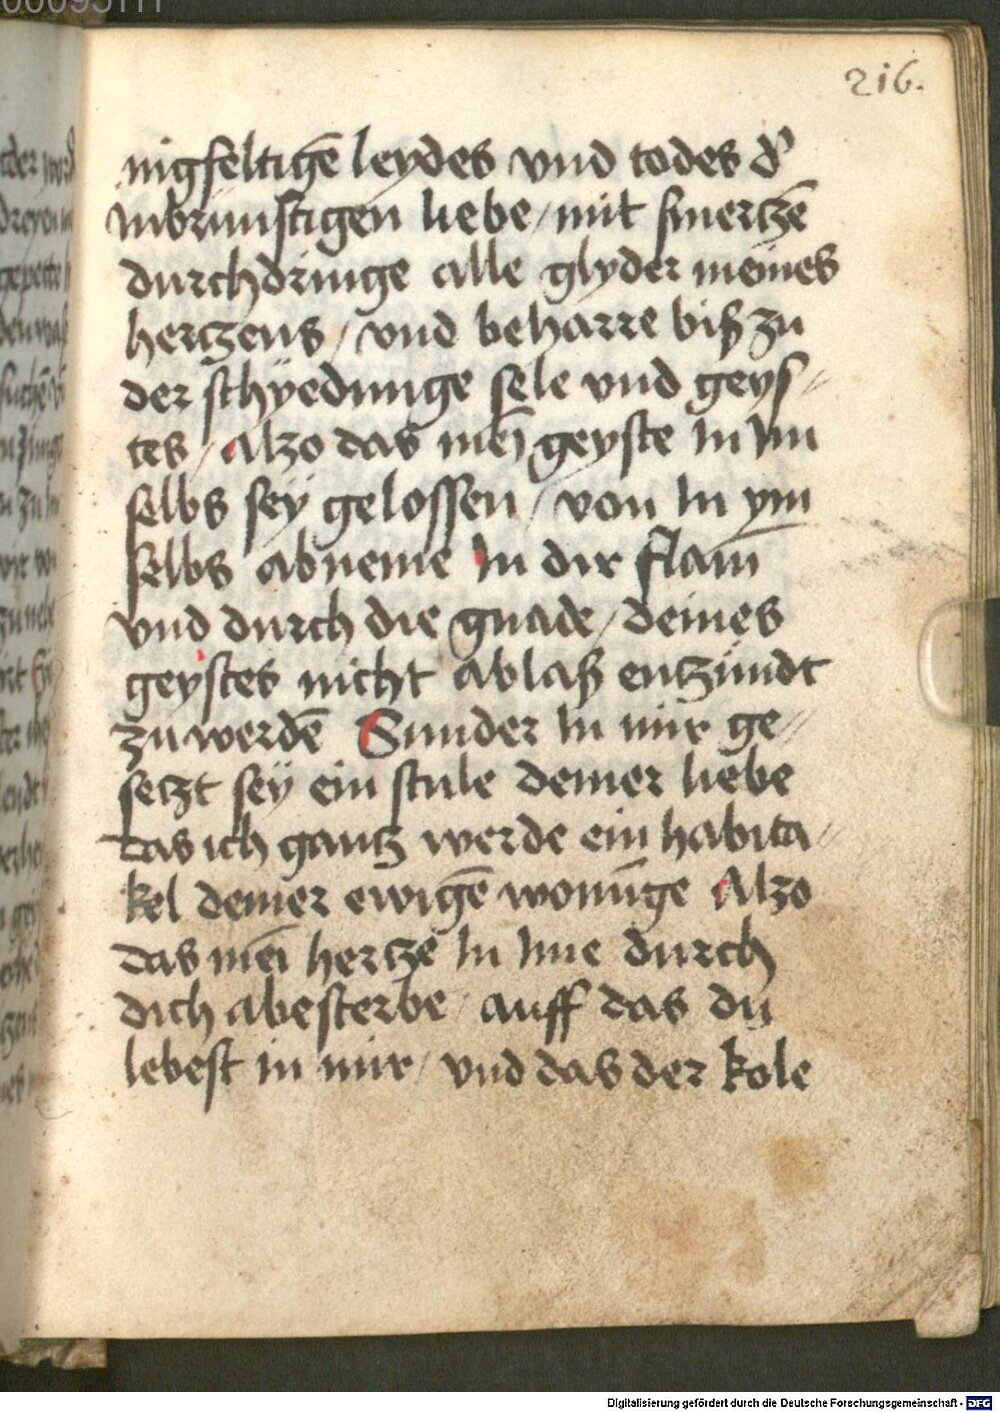 216.
nigfeltigē leydes vnd todes d'
Inbrunstigen liebe / mit smertzē
durchdringe alle glyder meines
hertzens / vnd beharre biß zu
der schÿedunge sele vnd geys⸗
tes / Alzo das mēi geyste In Im
selbs seÿ gelossen / von In ym
selbs abneme In dir flam̄
vnd durch die gnade / deines
geystes nicht ablaß entzundt
zu werdē Sunder In mir ge⸗
setzt seÿ ein stule deiner liebe
das ich gantz werde ein habita⸗
kel deiner ewigē wonūge Alzo
das mēi hertze In Ime durch
dich abesterbe / auff das dü
lebest in mir / vnd das der kole
Digitalisierung gefördert durch die Deutsche Forschungsgemeinschaft - DFG